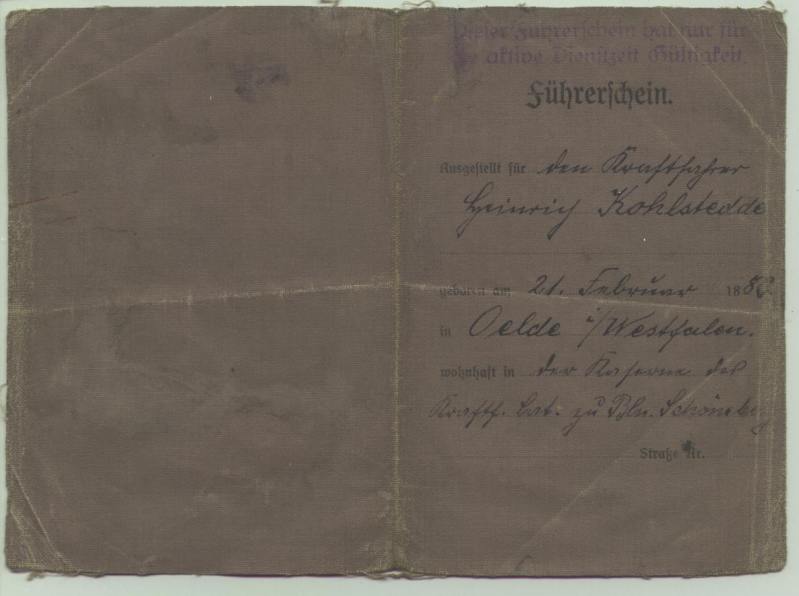 Dieser Führerschein hat nur für
die aktive Dienstzeit Gültigkeit.
Führerschein.
Ausgestellt für den Kraftfahrer
Heinrich Kohlstedde
geboren am 21. Februar 188
in Oelde i/Westfalen.
wohnhaft in der Kaserne des
Kraftf. Bat. zu Bln. Schöneberg
Straße Nr.